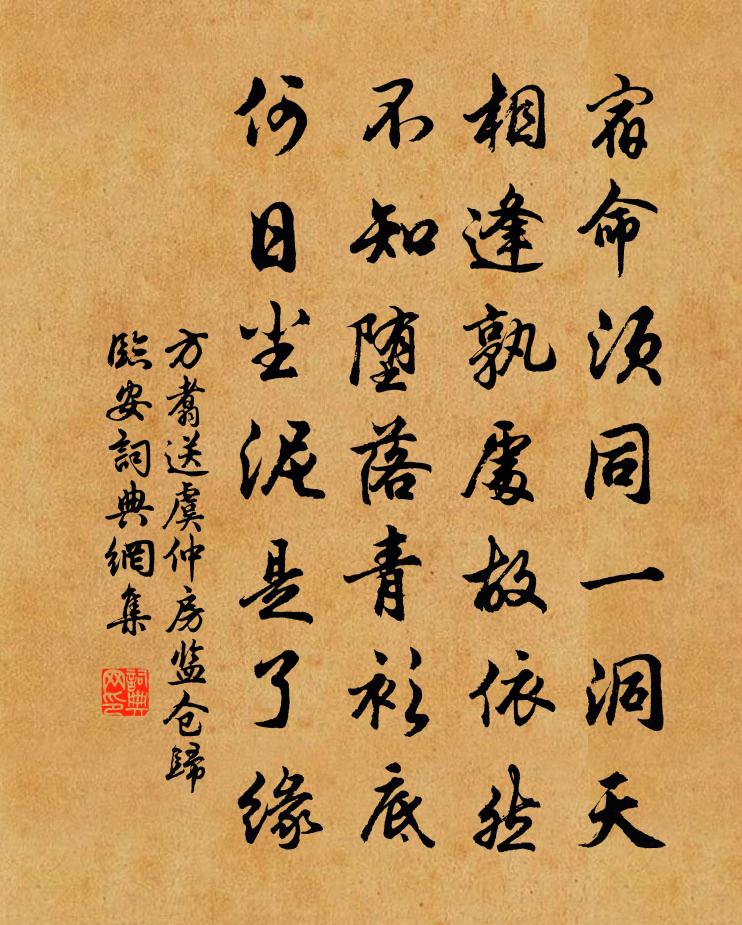 宿命须同一洞天
相逢孰處故依然
不知堕落青衫底
何日尘泥是了緣
方翥送虞仲房监仓歸
臨安詞典網集
詞典网印